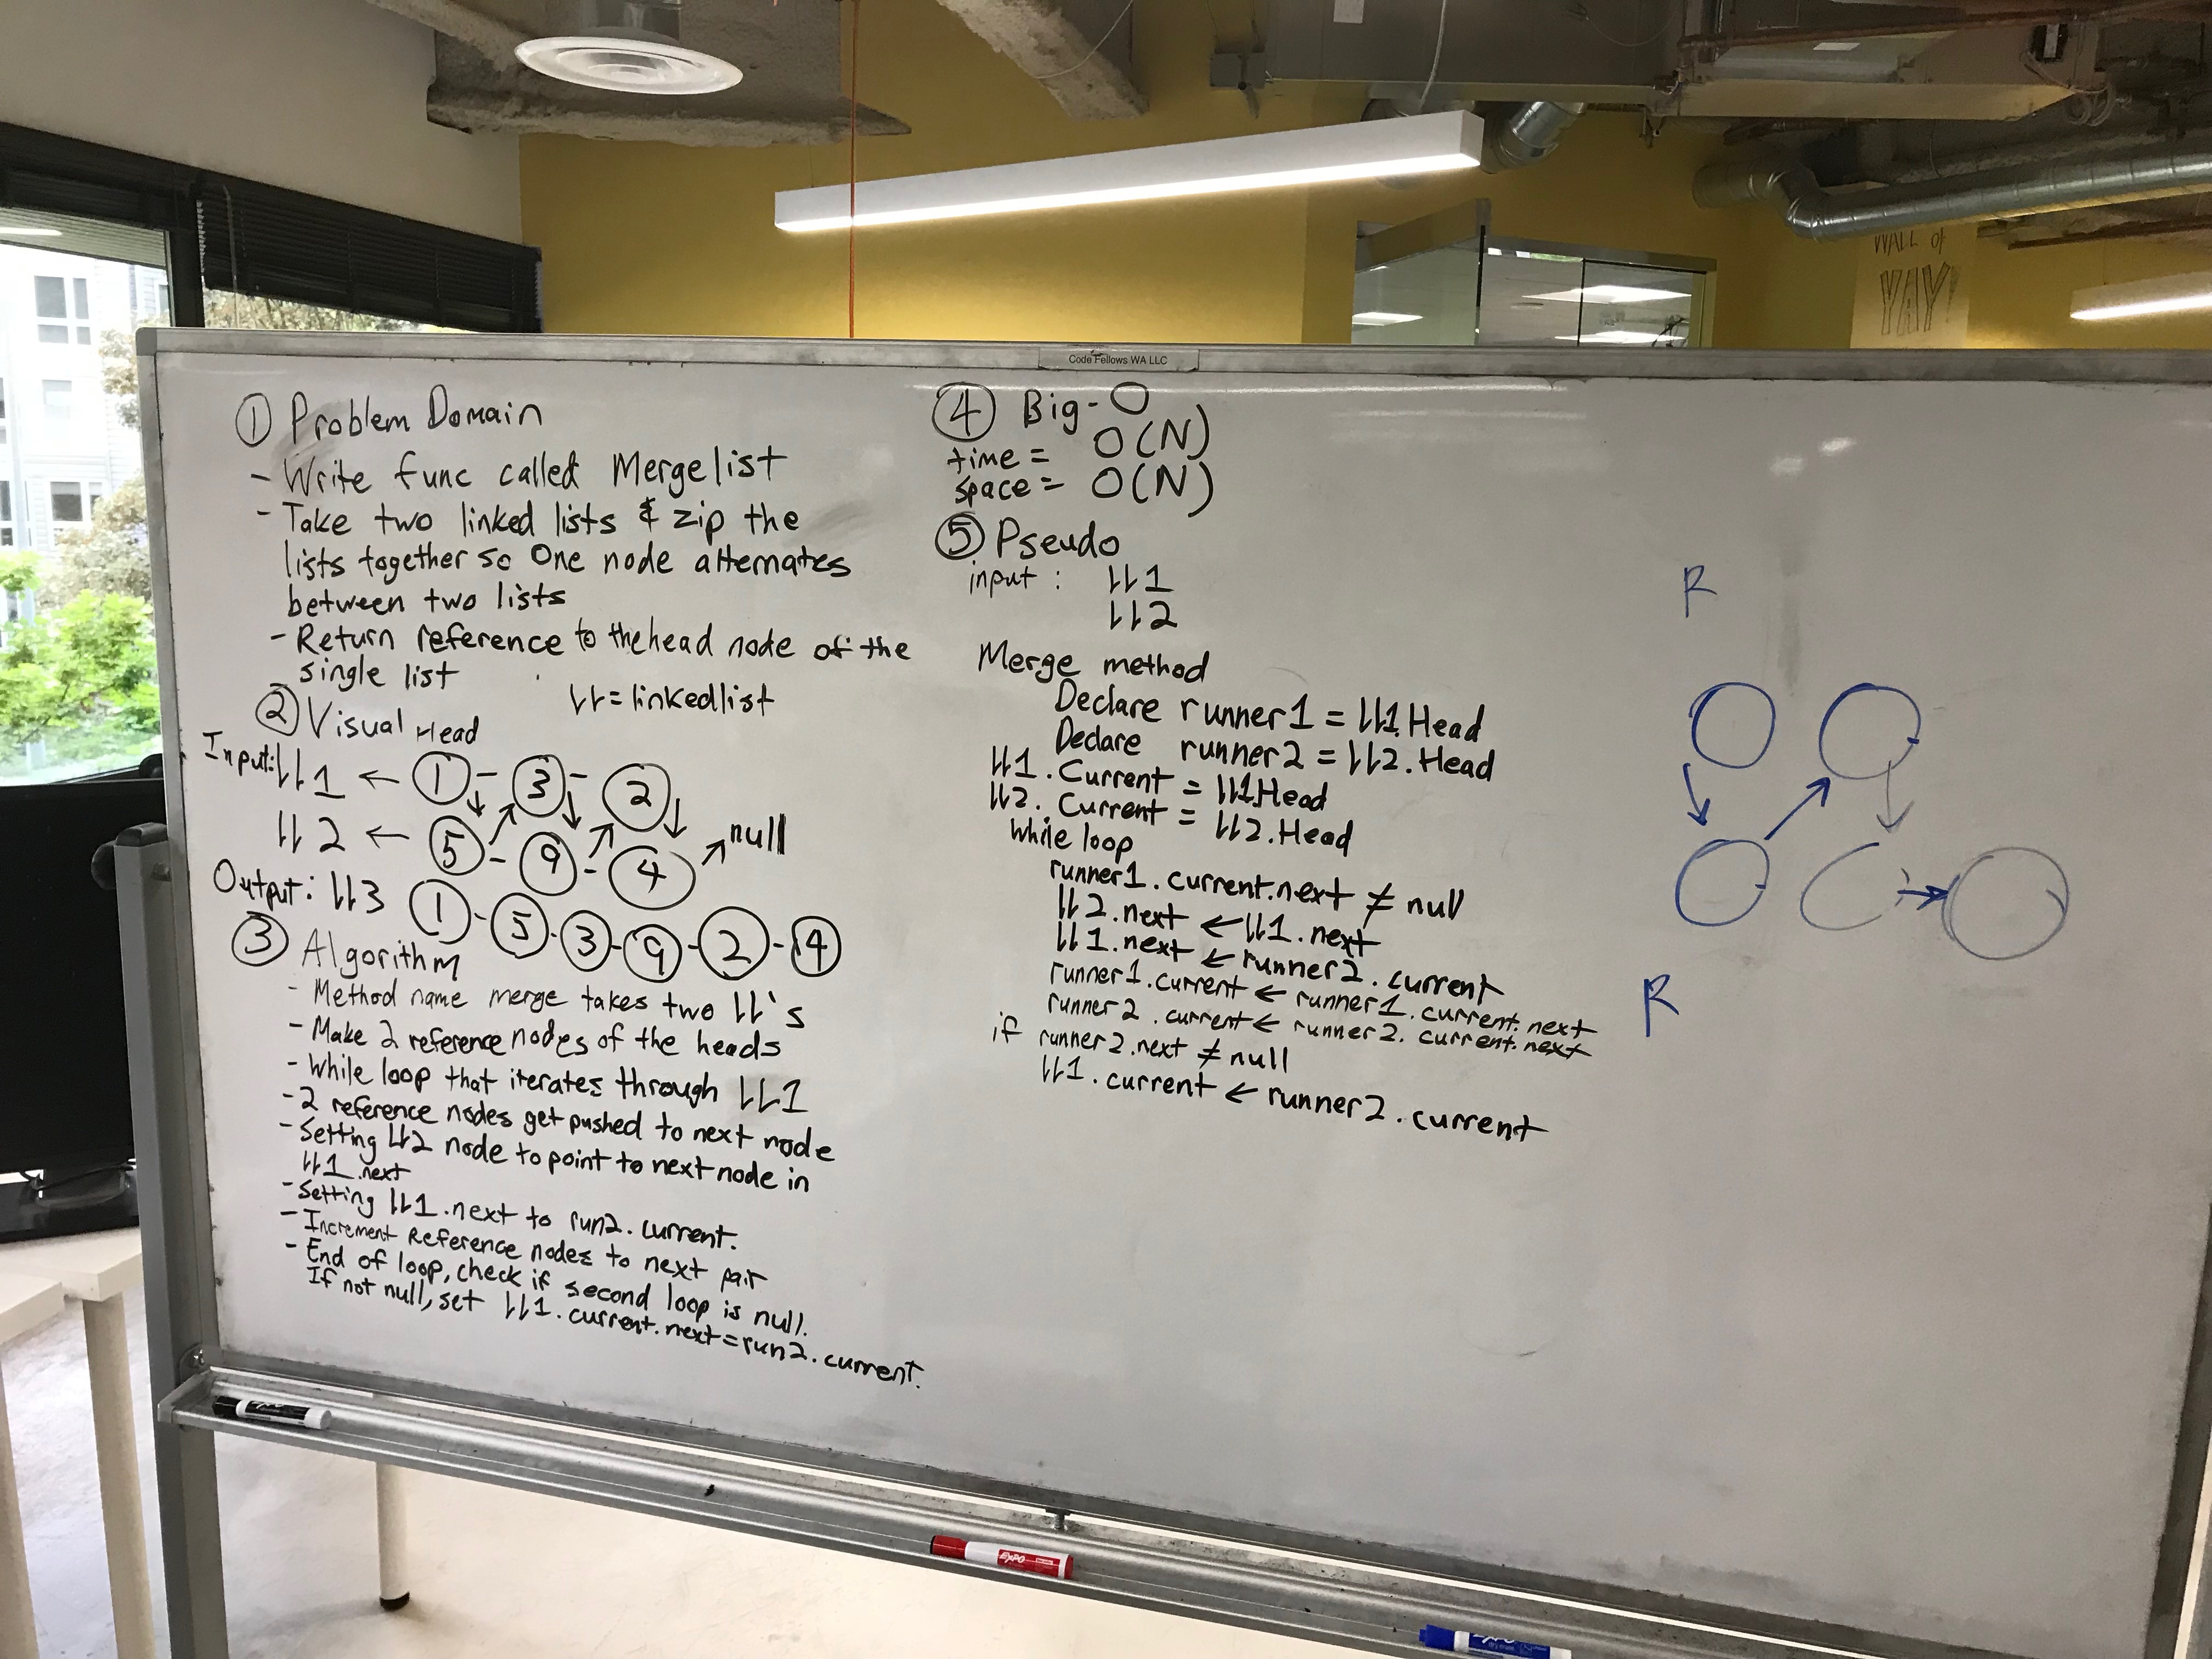 WALL of
YAY!
Code Fellows WA LLC
① Problem Domain
- Write func called Mergelist
- Take two linked lists & zip the
lists together so One node alternates
between two lists
- Return reference to the head node of the
single list
LL = linkedlist
② Visual Head
Input: LL1 ← ① - ③ - ②
LL2 ← ⑤ - ⑨ - ④ null
Output: LL3 ① - ⑤ - ③ - ⑨ - ② - ④
③ Algorithm
- Method name merge takes two LL's
- Make 2 reference nodes of the heads
- While loop that iterates through LL1
- 2 reference nodes get pushed to next node
- Setting LL2 node to point to next node in
LL1.next
- Setting LL1.next to run2.current.
- Increment Reference nodes to next pair
- End of loop, check if second loop is null.
If not null, set LL1.current.next = run2.current.
④ Big-O
time = O(N)
space = O(N)
⑤ Pseudo
input : LL1
LL2
Merge method
Declare runner1 = LL1.Head
Declare runner2 = LL2.Head
LL1.Current = LL1.Head
LL2.Current = LL2.Head
While loop
runner1.current.next ≠ null
LL2.next ← LL1.next
LL1.next ← runner2.current
runner1.current ← runner1.current.next
runner2.current ← runner2.current.next
if runner2.next ≠ null
LL1.current ← runner2.current
R
R
EXPO
EXPO